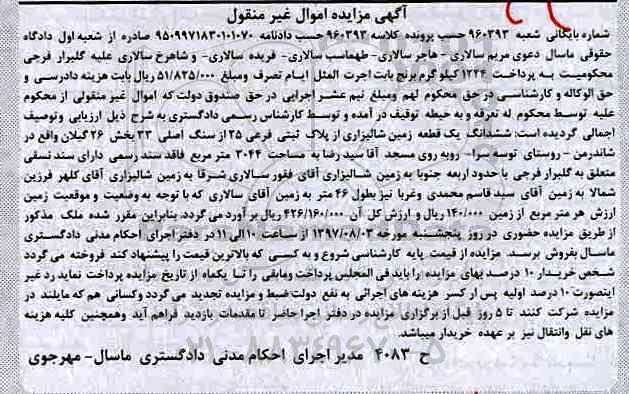 آگهی مزایده اموال غیر منقول
شماره بایگانی شعبه ۹۶۰۳۹۳ حسب پرونده کلاسه ۹۶۰۳۹۳ حسب دادنامه ۹۵۰۹۹۷۱۸۳۰۱۰۱۰۷۰ صادره از شعبه اول دادگاه
حقوقی ماسال دعوی مریم سالاری - هاجر سالاری- طهماسب سالاری- فریده سالاری- و شاهرخ سالاری علیه گلبرار فرجی
محکومیت به پرداخت ۱۲۲۴ کیلو گرم برنج بابت اجرت المثل ایام تصرف ومبلغ ۵۱/۸۲۵/۰۰۰ ریال بابت هزینه دادرسی و
حق الوکاله و کارشناسی در حق محکوم لهم ومبلغ نیم عشر اجرایی در حق صندوق دولت که اموال غیر منقولی از محکوم
علیه توسط محکوم له تعرفه و به حیطه توقیف در آمده و توسط کارشناس رسمی دادگستری به شرح ذیل ارزیابی وتوصیف
اجمالی گردیده است: ششدانگ یک قطعه زمین شالیزاری از پلاک ثبتی فرعی ۲۵ از سنگ اصلی ۳۳ بخش ۲۶ گیلان واقع در
شاندرمن - روستای توسه سرا- روبه روی مسجد آقا سید رضا به مساحت ۳۰۴۴ متر مربع فاقد سند رسمی دارای سند نسقی
متعلق به گلبرار فرجی با حدود اربعه جنوبا به زمین شالیزاری آقای فقور سالاری شرقا به زمین شالیزاری آقای کلهر فرزین
شمالا به زمین آقای سید قاسم محمدی وغربا نیز بطول ۴۶ متر به زمین آقای سالاری که با توجه به وضعیت و موقعیت زمین
ارزش هر متر مربع از زمین ۱۴۰/۰۰۰ ریال و ارزش کل آن ۴۲۶/۱۶۰/۰۰۰ ریال بر آورد می گردد. بنابراین مقرر شده ملک مذکور
از طریق مزایده حضوری در روز پنجشنبه مورخه ۱۳۹۷/۰۸/۰۳ از ساعت ۱۰ الی ۱۱ در دفتر اجرای احکام مدنی دادگستری
ماسال بفروش برسد. مزایده از قیمت پایه کارشناسی شروع و به کسی که بالاترین قیمت را پیشنهاد کند فروخته می گردد
شخص خریدار ۱۰ درصد بهای مزایده را باید فی المجلس پرداخت ومابقی را تا یکماه از تاریخ مزایده پرداخت نماید در غیر
اینصورت ۱۰ درصد اولیه پس از کسر هزینه های اجرائی به نفع دولت ضبط و مزایده تجدید می گردد وکسانی هم که مایلند در
مزایده شرکت کنند تا ۵ روز قبل از برگزاری مزایده در دفتر اجرا حاضر تا مقدمات بازدید فراهم آید وهمچنین کلیه هزینه
های نقل وانتقال نیز بر عهده خریدار میباشد.
ح ۴۰۸۳ مدیر اجرای احکام مدنی دادگستری ماسال- مهرجوی